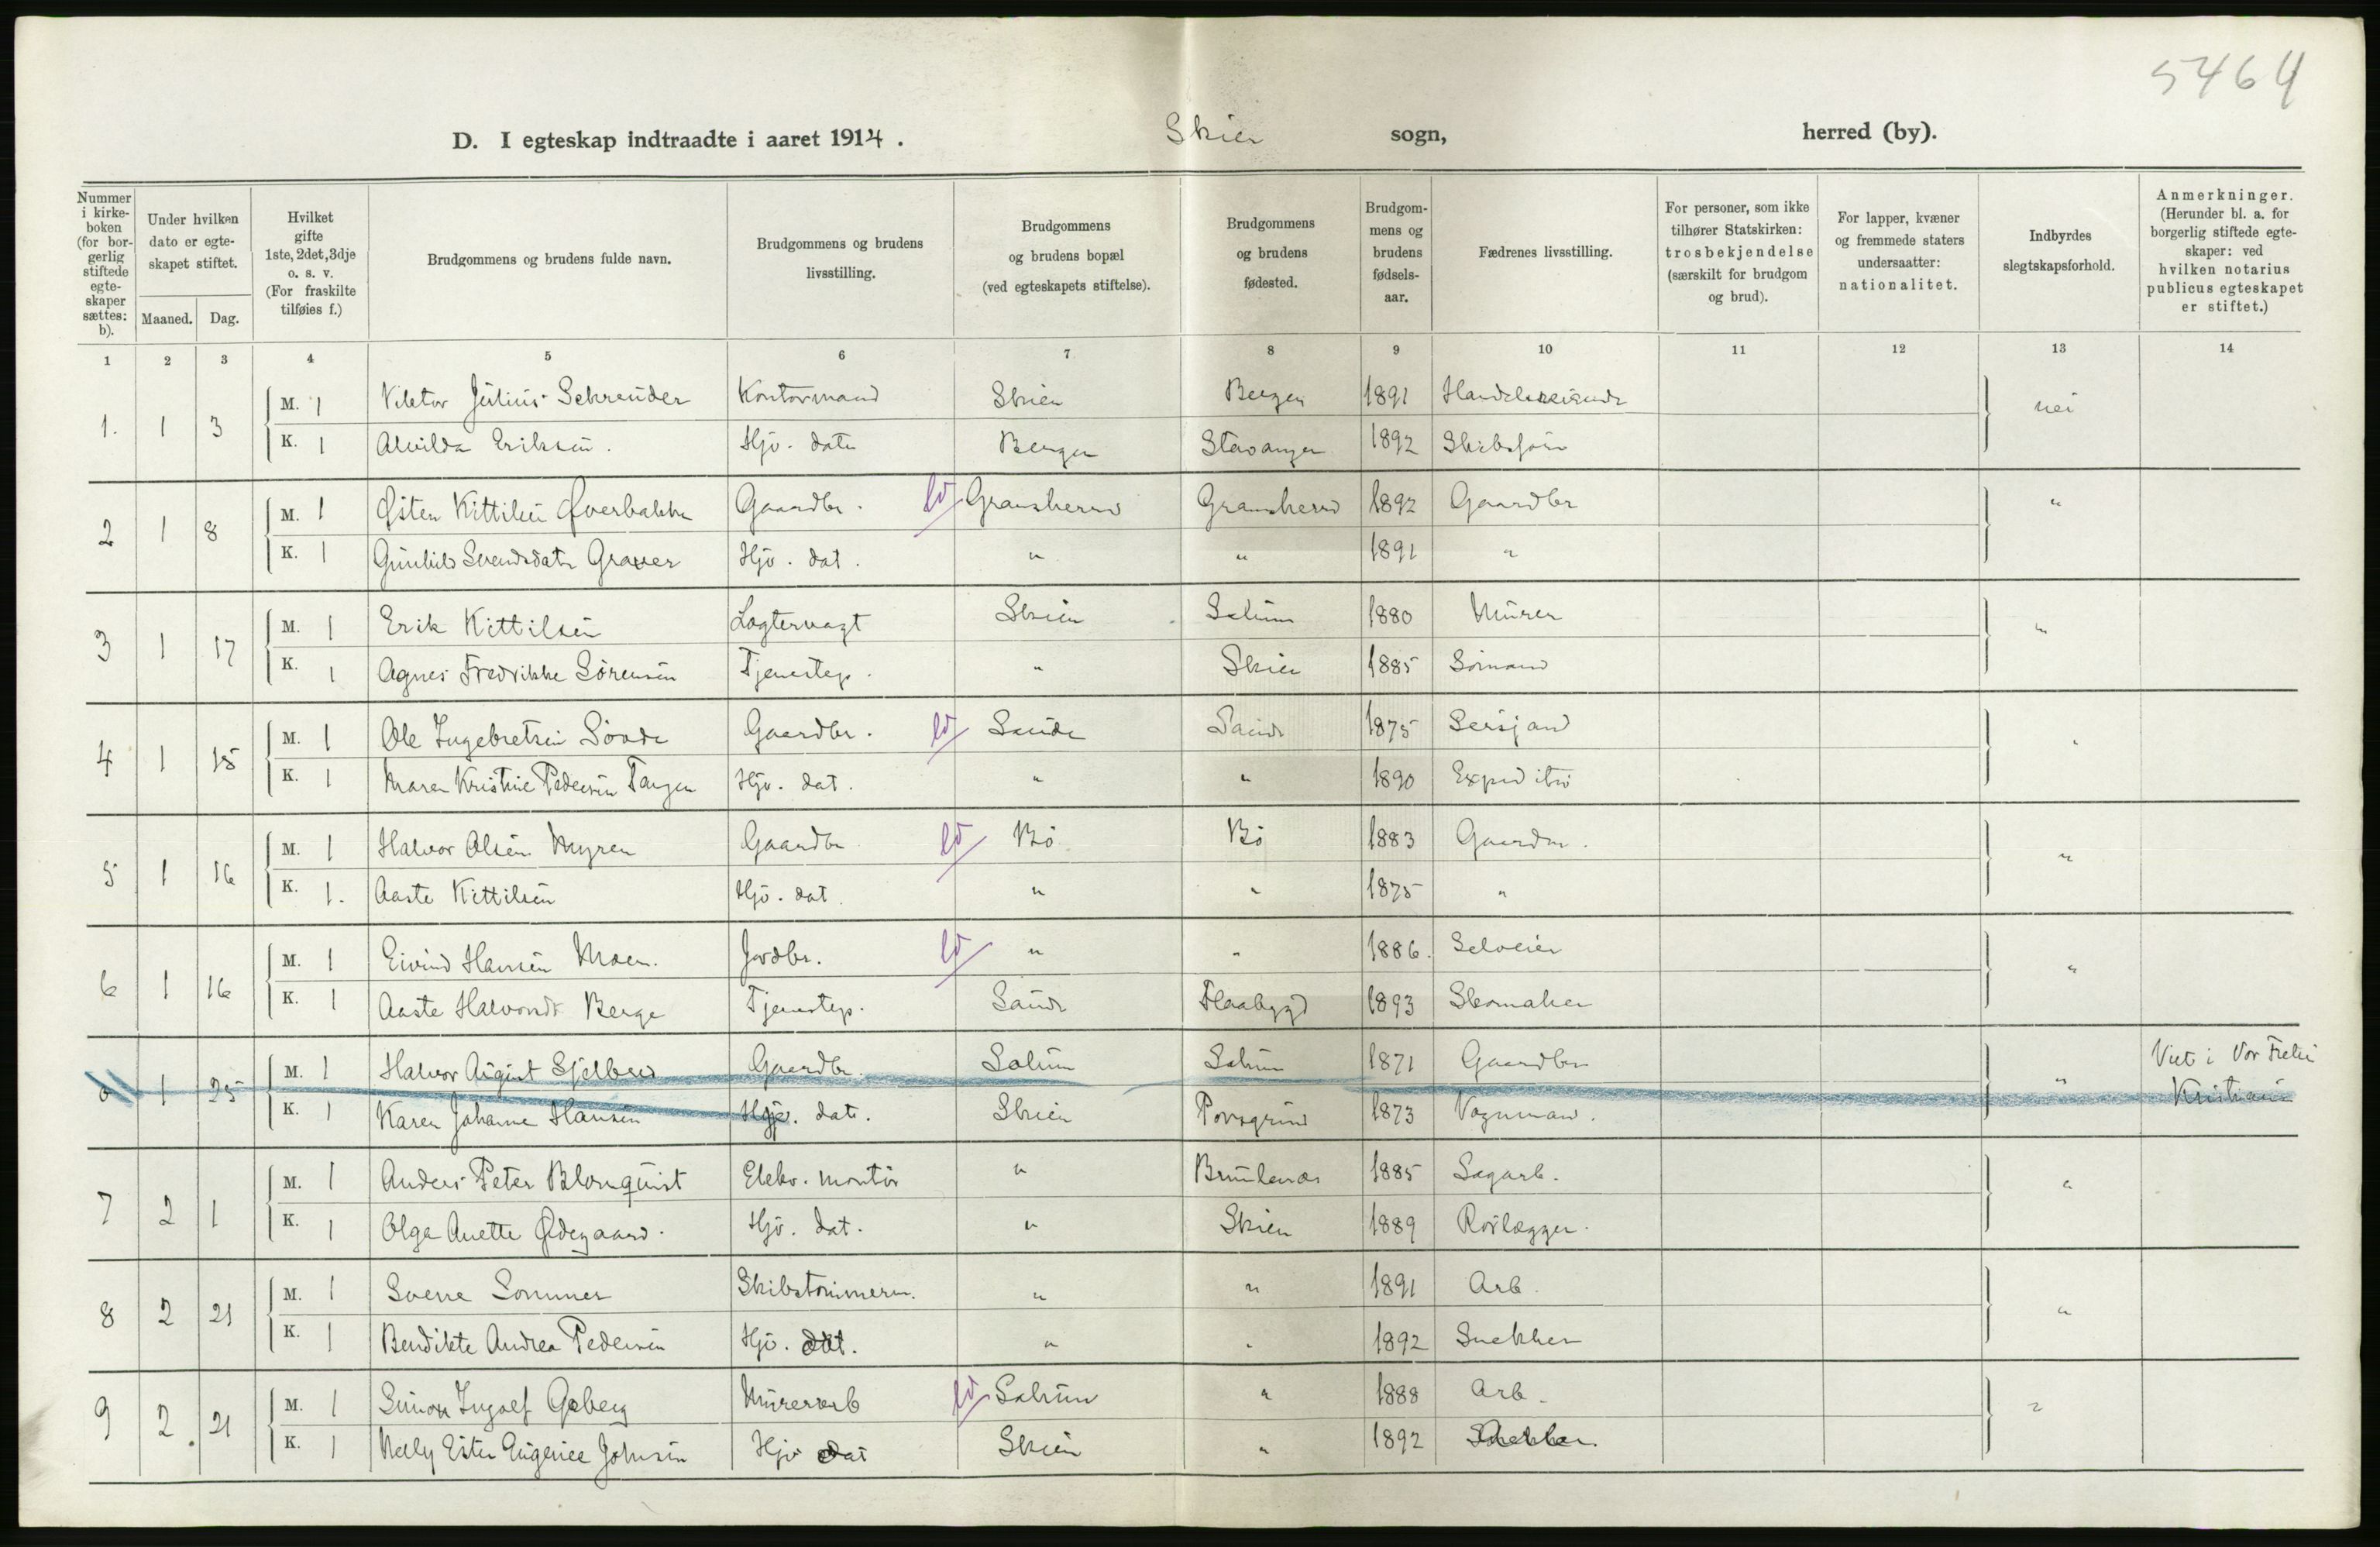 5464
D. I egteskap indtraadte i aaret 1914. Skien sogn, herred (by).
Nummer i kirkeboken (for borgerlig stiftede egteskaper sættes: b).
Under hvilken dato er egteskapet stiftet.
Maaned. Dag.
Hvilket gifte 1ste, 2det, 3dje o. s. v. (For fraskilte tilføies f.)
Brudgommens og brudens fulde navn.
Brudgommens og brudens livsstilling.
Brudgommens og brudens bopæl (ved egteskapets stiftelse).
Brudgommens og brudens fødested.
Brudgommens og brudens fødselsaar.
Fædrenes livsstilling.
For personer, som ikke tilhører Statskirken: trosbekjendelse (særskilt for brudgom og brud).
For lapper, kvæner og fremmede staters undersaatter: nationalitet.
Indbyrdes slegtskapsforhold.
Anmerkninger. (Herunder bl. a. for borgerlig stiftede egteskaper: ved hvilken notarius publicus egteskapet er stiftet.)
1 2 3 4 5 6 7 8 9 10 11 12 13 14
1. 1 3 M. 1 Viktor Julius Schreuder Kontormand Skien Bergen 1891 nei
K. 1 Alvilda Eriksen. Hjv. datr Bergen Stavanger 1892
2 1 8 M. 1 Østen Kittilsen Øverbakke Gaardbr. Gransherred Gransherred 1892 Gaardbr "
K. 1 Gunhild Svendsdatr Graver Hjv. dat. " " 1891 "
3 1 17 M. 1 Erik Kittilsen Logtervagt Skien Solum 1880 Murer "
K. 1 Agnes Fredrikke Sörensen Tjenestep. " Skien 1885 Sömand
4 1 15 M. 1 Ole Ingebretsen Gaardbr. Saude Saude 1875 Sersjand "
K. 1 Maren Kristine Pedersen Tangen Hjv. dat. " " 1890 Expeditör
5 1 16 M. 1 Halvor Olsen Myren Gaardbr Bö Bö 1883 Gaardbr. "
K. 1. Aaste Kittilsen Hjv. dat. " " 1875 "
6 1 16 M. 1 Eivind Hansen Moen. Jordbr. " " 1886. Selveier "
K. 1 Aaste Halvorsdr Berge Tjenestep. Saude Flaabygd 1893 Skomaker
1 25 M. 1 Halvor August Gaardbr. Solum Solum 1871 Gaardbr " Viet i Vor Frelser
K. 1 Karen Johanne Hansen Hjv. datr. Skien Porsgrund 1873 Vognmand. Kristiania
7 2 1 M. 1 Anders Peter Blomquist Elekr. montör " Brunlanes 1885 Sagarb. "
K. 1 Olga Anette Ødegaard. Hjv. dat. " Skien 1889 Rörlægger.
8 2 21 M. 1 Sverre Sommer Skibstömmerm. " " 1891 Arb. "
K. 1 Bendikte Andrea Pedersen Hjv. dat. " " 1892 Snekker
9 2. 21 M. 1 Simon Ingolf Murerarb Solum " 1888 Arb. "
K. 1 Nelly Ester Eugenie Johnsen Hjv dat Skien " 1892 Snekker.